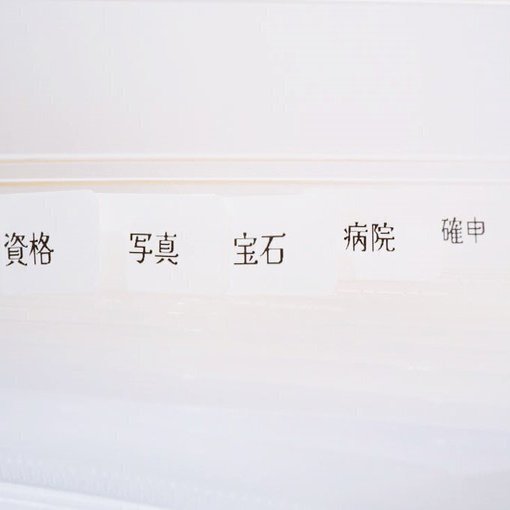 資格 写真 宝石 病院 確申